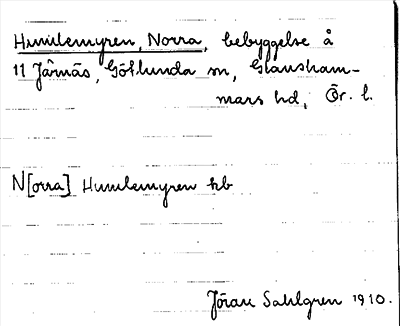 Humlemyren, Norra, bebyggelse å
11 Järnäs, Götlunda sn, Glansham-
mars hd, Ör. l.
N[orra] Humlemyren hb
Jöran Sahlgren 1910.